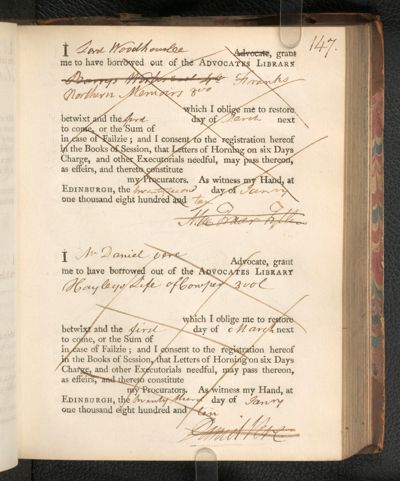 147.
I Lord Woodhouslee Advocate, grant
me to have borrowed out of the ADVOCATES LIBRARY
Barrys Works vol 4to Franks
Northern Memoirs 8vo
which I oblige me to restore
betwixt and the first day of March next
to come, or the Sum of
in case of Failzie; and I consent to the registration hereof
in the Books of Session, that Letters of Horning on six Days
Charge, and other Executorials needful, may pass thereon,
as effeirs, and thereto constitute
my Procurators. As witness my Hand, at
EDINBURGH, the twenty second day of Janry
one thousand eight hundred and ten
I Mr Daniel vere Advocate, grant
me to have borrowed out of the ADVOCATES LIBRARY
Hayleys Life of Cowper 3 vol
which I oblige me to restore
betwixt and the first day of March next
to come, or the Sum of
in case of Failzie; and I consent to the registration hereof
in the Books of Session, that Letters of Horning on six Days
Charge, and other Executorials needful, may pass thereon,
as effeirs, and thereto constitute
my Procurators. As witness my Hand, at
EDINBURGH, the twenty third day of Janry
one thousand eight hundred and ten
Daniel Vere